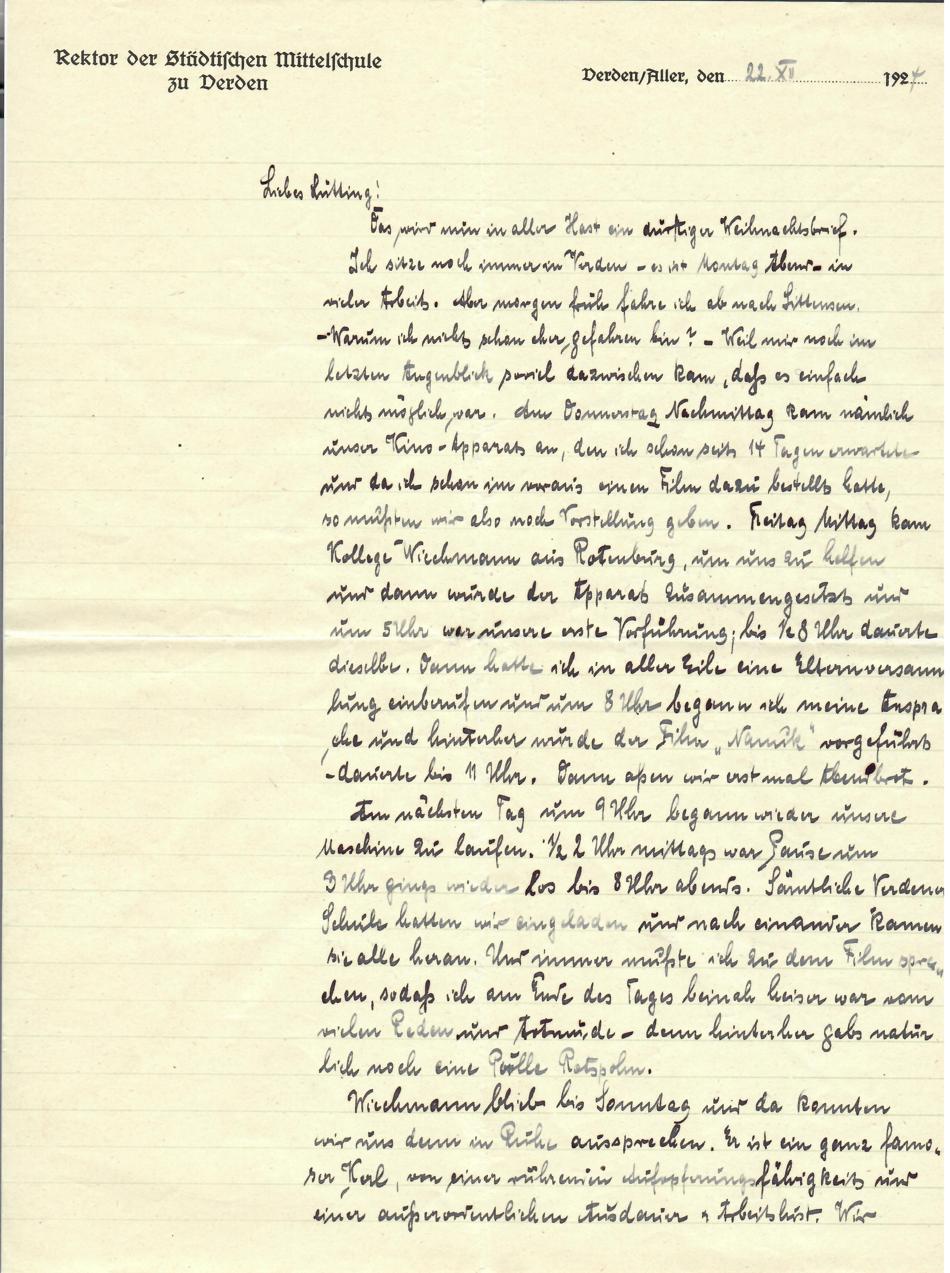 Rektor der Städtischen Mittelschule
zu Verden
Verden/Aller, den 22. XII 1924
Liebes Lütting!
Das wird nun in aller Hast ein dürftiger Weihnachtsbrief.
Ich sitze noch immer in Verden – es ist Montag Abend – in
vieler Arbeit. Aber morgen früh fahre ich ab nach Sittensen.
– Warum ich nicht schon eher gefahren bin? – Weil mir noch im
letzten Augenblick soviel dazwischen kam, daß es einfach
nicht möglich war. Am Donnerstag Nachmittag kam nämlich
unser Kino-Apparat an, den ich schon seit 14 Tagen erwartete
und da ich schon im voraus einen Film dazu bestellt hatte,
so mußten wir also noch Vorstellung geben. Freitag Mittag kam
Kollege Wiechmann aus Rotenburg, um uns zu helfen
und dann wurde der Apparat zusammengesetzt und
um 5 Uhr war unsere erste Vorführung; bis ½ 8 Uhr dauerte
dieselbe. Dann hatte ich in aller Eile eine Elternversamm
lung einberufen und um 8 Uhr begann ich meine Anspra
che und hinterher wurde der Film „Nanuk" vorgeführt
– dauerte bis 11 Uhr. Dann aßen wir erst mal Abendbrot.
Am nächsten Tag um 9 Uhr begann wieder unsere
Maschine zu laufen. ½ 2 Uhr mittags war Pause um
3 Uhr gings wieder los bis 8 Uhr abends. Sämtliche Verdener
Schule hatten wir eingeladen und nach einander kamen
sie alle heran. Und immer mußte ich zu dem Film spre-
chen, sodaß ich am Ende des Tages beinah heiser war vom
vielen Reden und totmüde – denn hinterher gabs natür
lich noch eine Pulle Rotspohn.
Wiechmann blieb bis Sonntag und da konnten
wir uns denn in Ruhe aussprechen. Er ist ein ganz famo-
ser Kerl, von einer rührenden Aufopferungsfähigkeit und
einer außerordentlichen Ausdauer u Arbeitslust. Wir